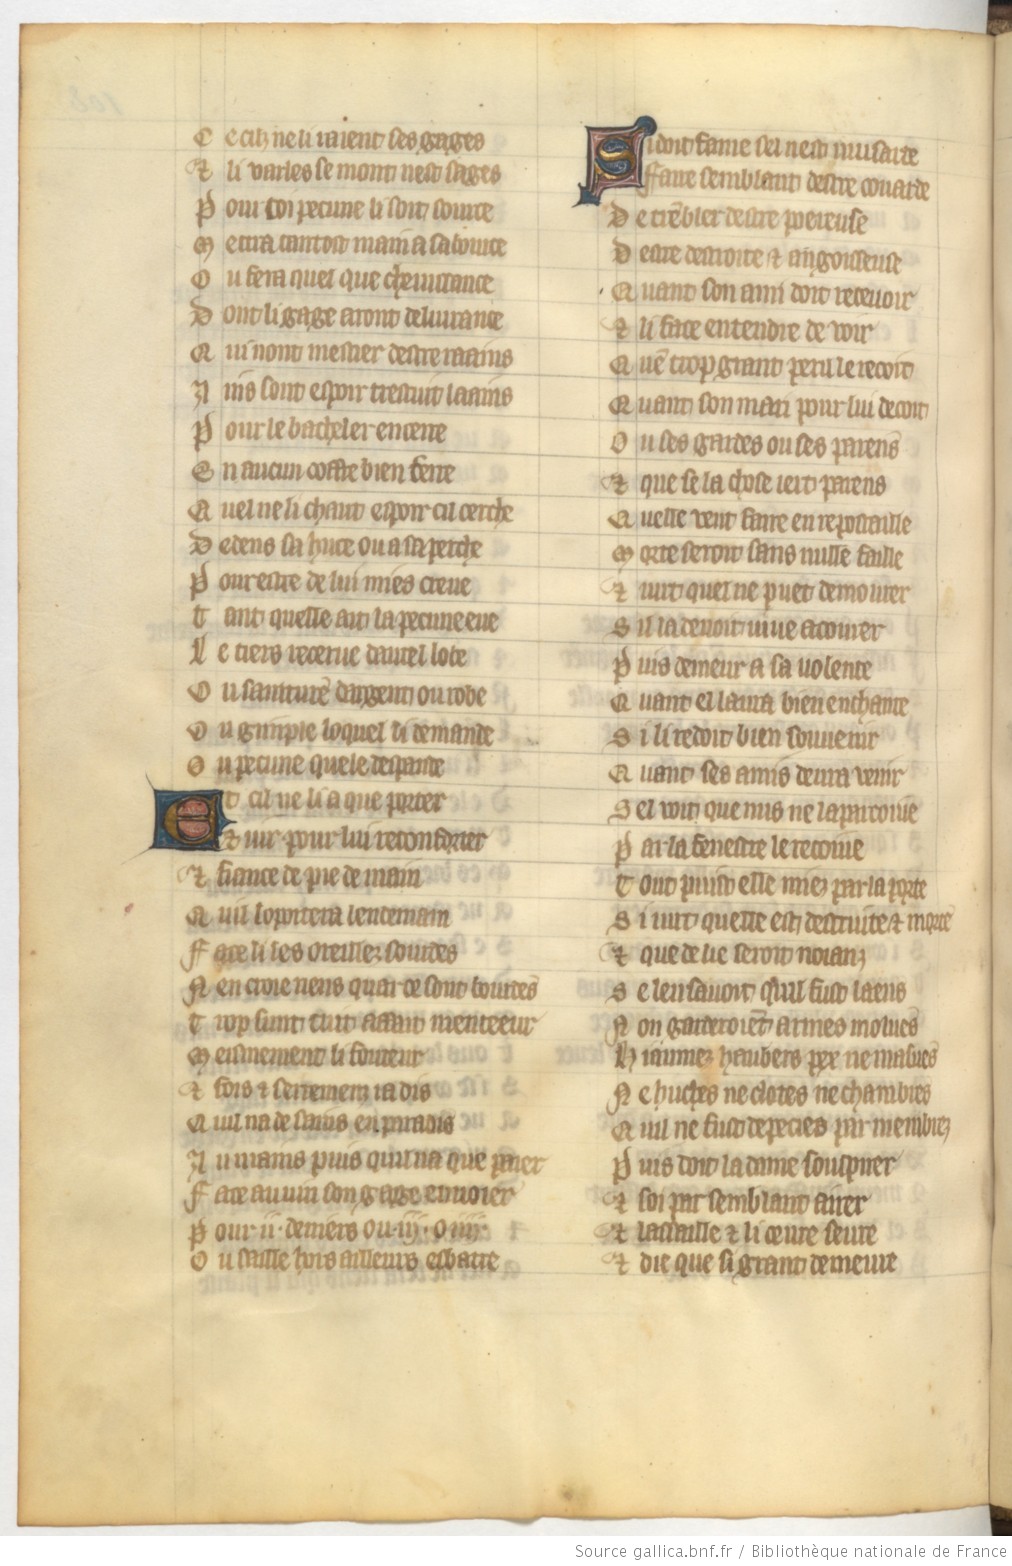 C e cil ne li raient ses gages
Et li varles se mont nest sages
P our coi pecune li soit source
M ettra tantost main a sa bource
O u fera quel que chevissance
D ont li gage aront delivrance
Q ui nont mestier destre raains
N ins sont espoir trestuit laains
P our le bacheler enserre
E n aucun coffre bien ferre
Q uel ne li chaut espoir cil cerche
D edens sa huce ou a sa perche
P our estre de lui mies creue
T ant quelle ait la pecune eue
L e tiers reserue dautel lobe
O u sainture dargent ou robe
O u guimple loquel li demande
O u pecune quele despande
E t cil ne li a que porter
Et iur pour lui reconforter
Et fiance de pie de main
Q uil loportera lendemain
F ace li les oreillez sourdes
N en croie riens quar ce sont bourdes
T rop sunt tuit apant menteeur
M ei si mement li fouteur
Et fois et serremenz iadis
Q uil na de sains en paradis
N u mains puis quil na que paier
F ace au uin son gage enuoier
P our ii. deniers ou iij. o iiij.
O u saille hors ailleurs esbatre
S i doit fame sel nest musarde
F aire semblant destre couarde
D e trebler destre poereuse
D estre destroite et angoisseuse
Q uant son ami doit receuoir
Et li face entendre de voir
Q ue trop grant peril le recoit
Q uant son mari pour lui decoit
O u ses gardes ou ses parens
Et que se la chose iert parens
Q uelle veut faire en repostaille
M orte seroit sans nulle faille
Et iurt quel ne puet demourer
S il la deuoit uiue acourer
P uis demeur a sa volente
Q uant el laura bien enchante
S i li redoit bien souuenir
Q uant ses amis deura venir
S el voit que nus ne laparcoiue
P ar la fenestre le recoiue
T out puist elle miez par la porte
S i iurt quelle est destruite et morte
Et que de lie seroit noianz
S e len sauoit quil fust laens
N on garderoiet armes molues
H iaumez haubers pex ne masues
N e huches ne clotes ne chambres
Q uil ne fust depecies par membrez
P uis doit la dame souspirer
Et soi par semblant airer
Et lassaille et li coeure seure
Et die que si grant demeure